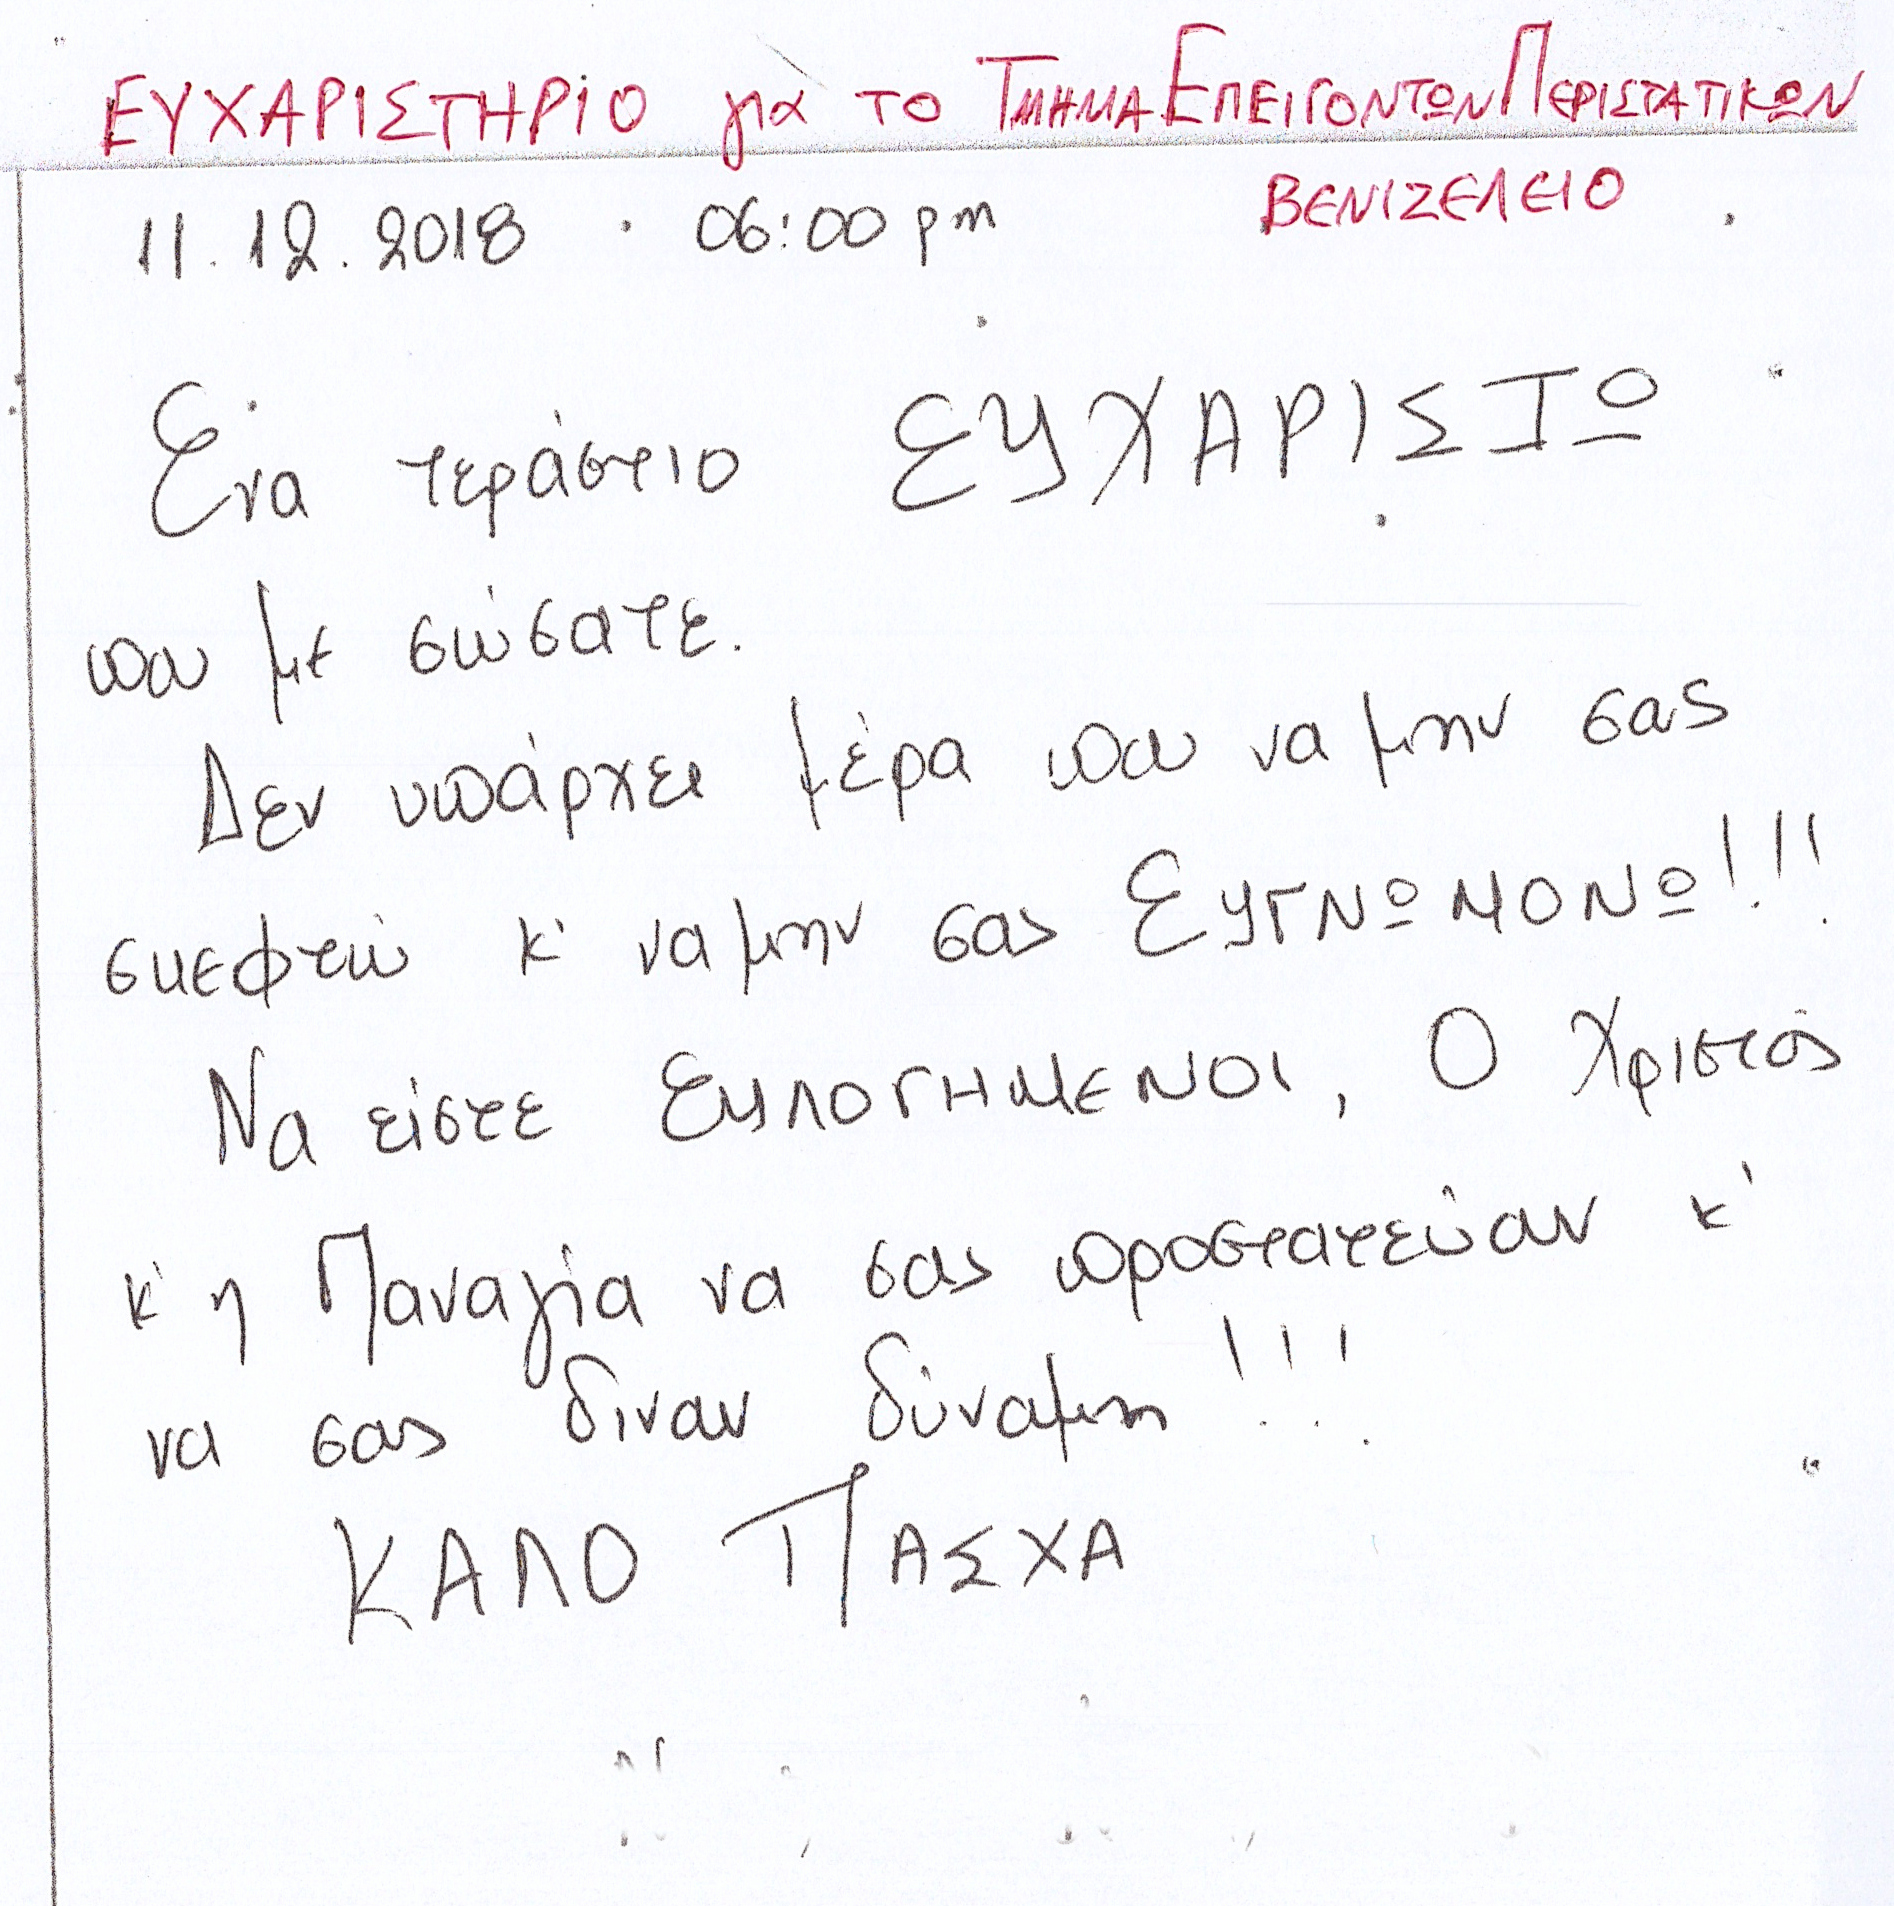 ΕΥΧΑΡΙΣΤΗΡΙΟ για το ΤΜΗΜΑ ΕΠΕΙΓΟΝΤΩΝ ΠΕΡΙΣΤΑΤΙΚΩΝ
ΒΕΝΙΖΕΛΕΙΟ
11.12.2018 . 06:00 pm
Ενα τεράστιο ΕΥΧΑΡΙΣΤΩ
που με σώσατε.
Δεν υπάρχει μέρα που να μην σας
σκεφτώ κ' να μην σας ΕΥΓΝΩΜΟΝΩ!!!
Να είστε ΕΥΛΟΓΗΜΕΝΟΙ, Ο Χριστός
κ' η Παναγία να σας προστατεύουν κ'
να σας δινουν δύναμη!!!
ΚΑΛΟ ΠΑΣΧΑ